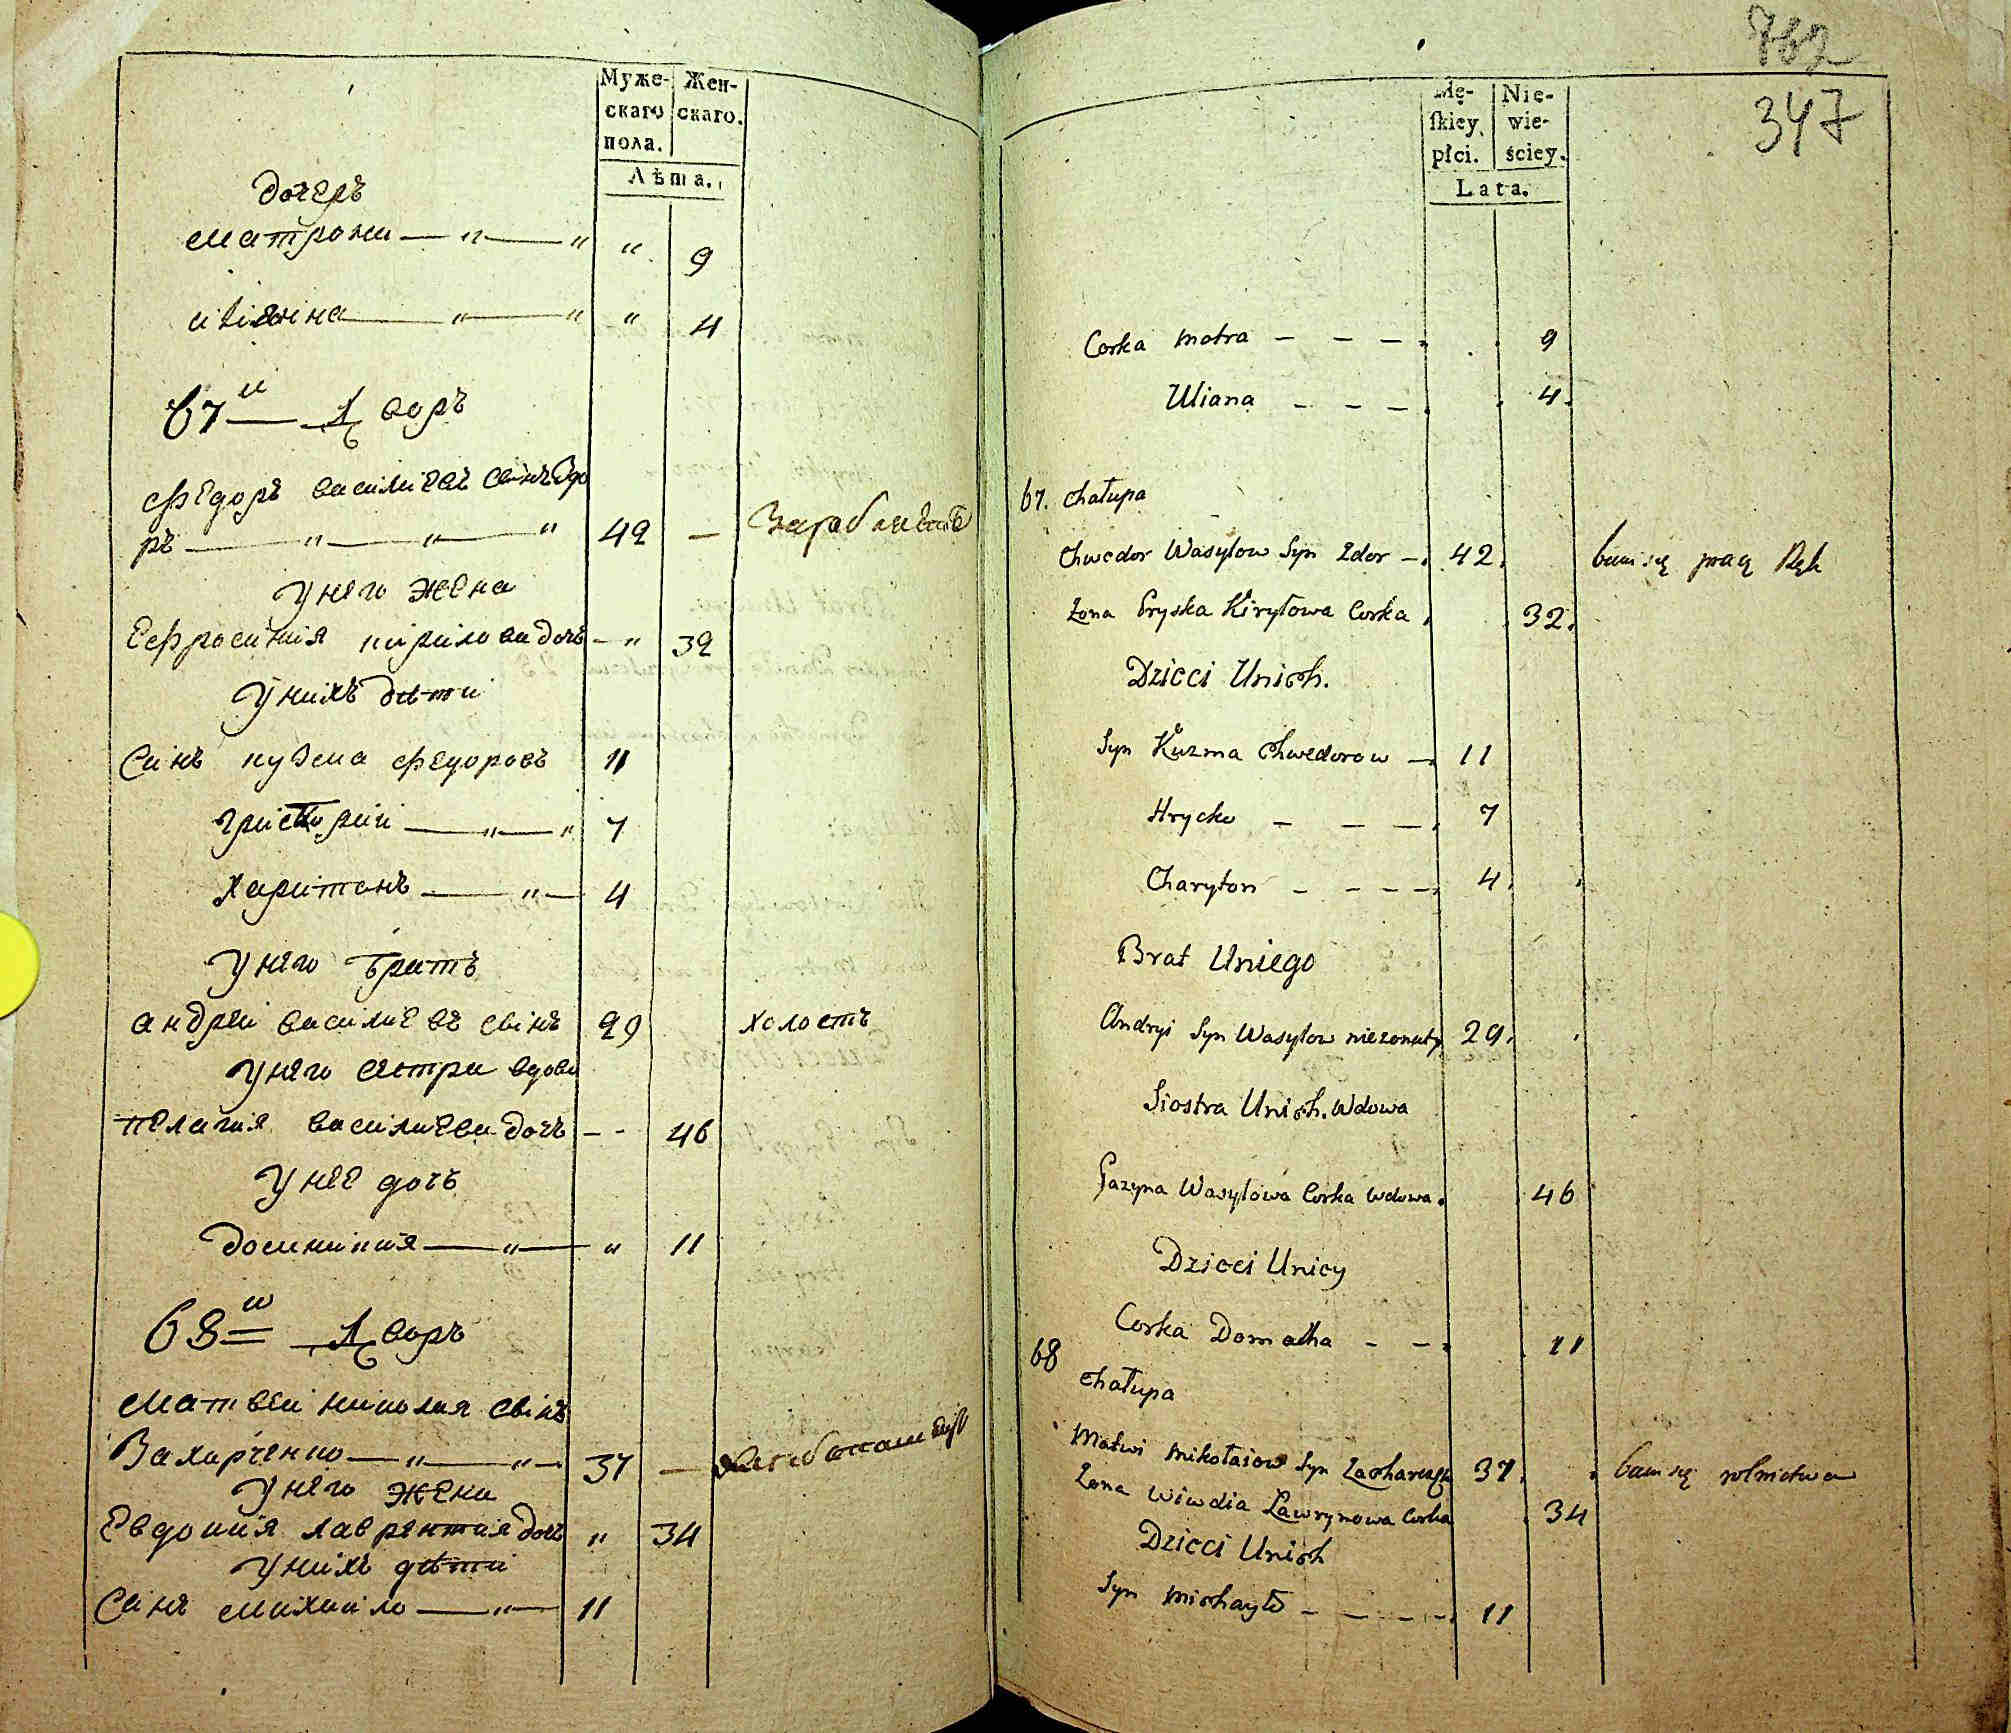 Муже- Жен-
скаго скаго.
пола.
Лѣта.
дочерь
Матрони — „ — „ „ 9
Ulіяна — „ — „ „ 4
67й Дворъ
Федоръ василиевъ синъ Здо
ръ — „ — „ — „ 42 —
у него жена
Ефросиния кирилова дочь — „ 32
у нихъ дѣти
Синъ кузма федоровъ 11
григорий — „ — „ 7
харитонъ — „ — 4
у него братъ
андрей василиевъ синъ 29 холостъ
у него сестра вдова
пелагия василиева дочь — - 46
у нее дочь
домникия — „ — „ 11
68й Дворъ
Матвей николая синъ
Захарченко — „ — „ — 37 —
у него жена
Евдокия лаврентия дочь „ 34
у нихъ дѣти
Синъ михайло — „ — 11
762
347
Mę- Nie-
ſkiey wie-
płci. ściey.
Lata.
Corka Motra - - - 9
Uliana - - - 4.
67. Chałupa
Chwedor Wasylow Syn Zdor - 42.
Zona Pryska Kiryłowa Corka 32.
Dzieci Unich.
Syn Kuzma Chwedorow - 11
Hrycko - - - 7
Charyton - - - - 4.
Brat Uniego
Andryi Syn Wasylow niezonaty 29.
Siostra Unich. Wdowa
Wasylowa Corka wdowa. 46
Dzieci Unicy
Corka Domacha - - 11
68
Chałupa
Matwi Mikołaiow Syn 37. bawi się rolnictwa
Zona Wiwdia Ławrynowa Corka 34
Dzieci Unich
Syn Michayło - - - - 11